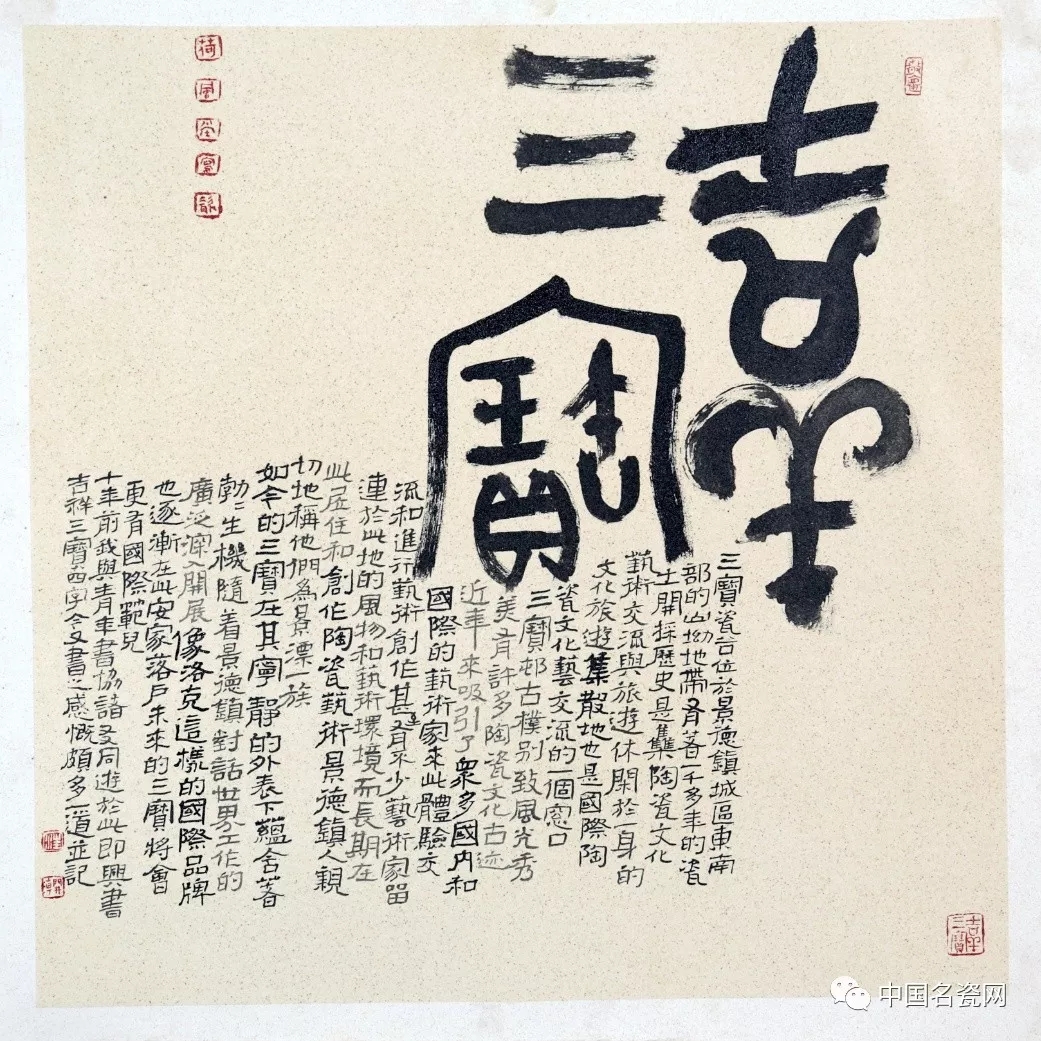 吉羊
三寶
三寶瓷谷位於景德鎮城區東南
部的山坳地帶有着一千多年的瓷
土開採歷史是集陶瓷文化
藝術交流與旅遊休閑於一身的
文化旅遊集散地也是國際陶
瓷文化藝交流的一個窓口
三寶邨古樸別致風光秀
美有許多陶瓷文化古迹
近年來吸引了衆多國內和
國際的藝術家來此體驗交
流和進行藝術創作甚至有不少藝術家留
連於此地的風物和藝術環境而長期在
此居住和創作陶瓷藝術景德鎮人親
切地稱他們爲景漂一族
如今的三寶在其寧靜的外表下蘊含着
勃〻生機隨着景德鎮對話世界工作的
廣泛深入開展像洛克這樣的國際品牌
也逐漸在此安家落戶未來的三寶將會
更有國際範兒
十年前我與青年書協諸友同遊於此即興書
吉祥三寶四字今又書之感慨頗多一道並記
吉羊三寶
中国名瓷网